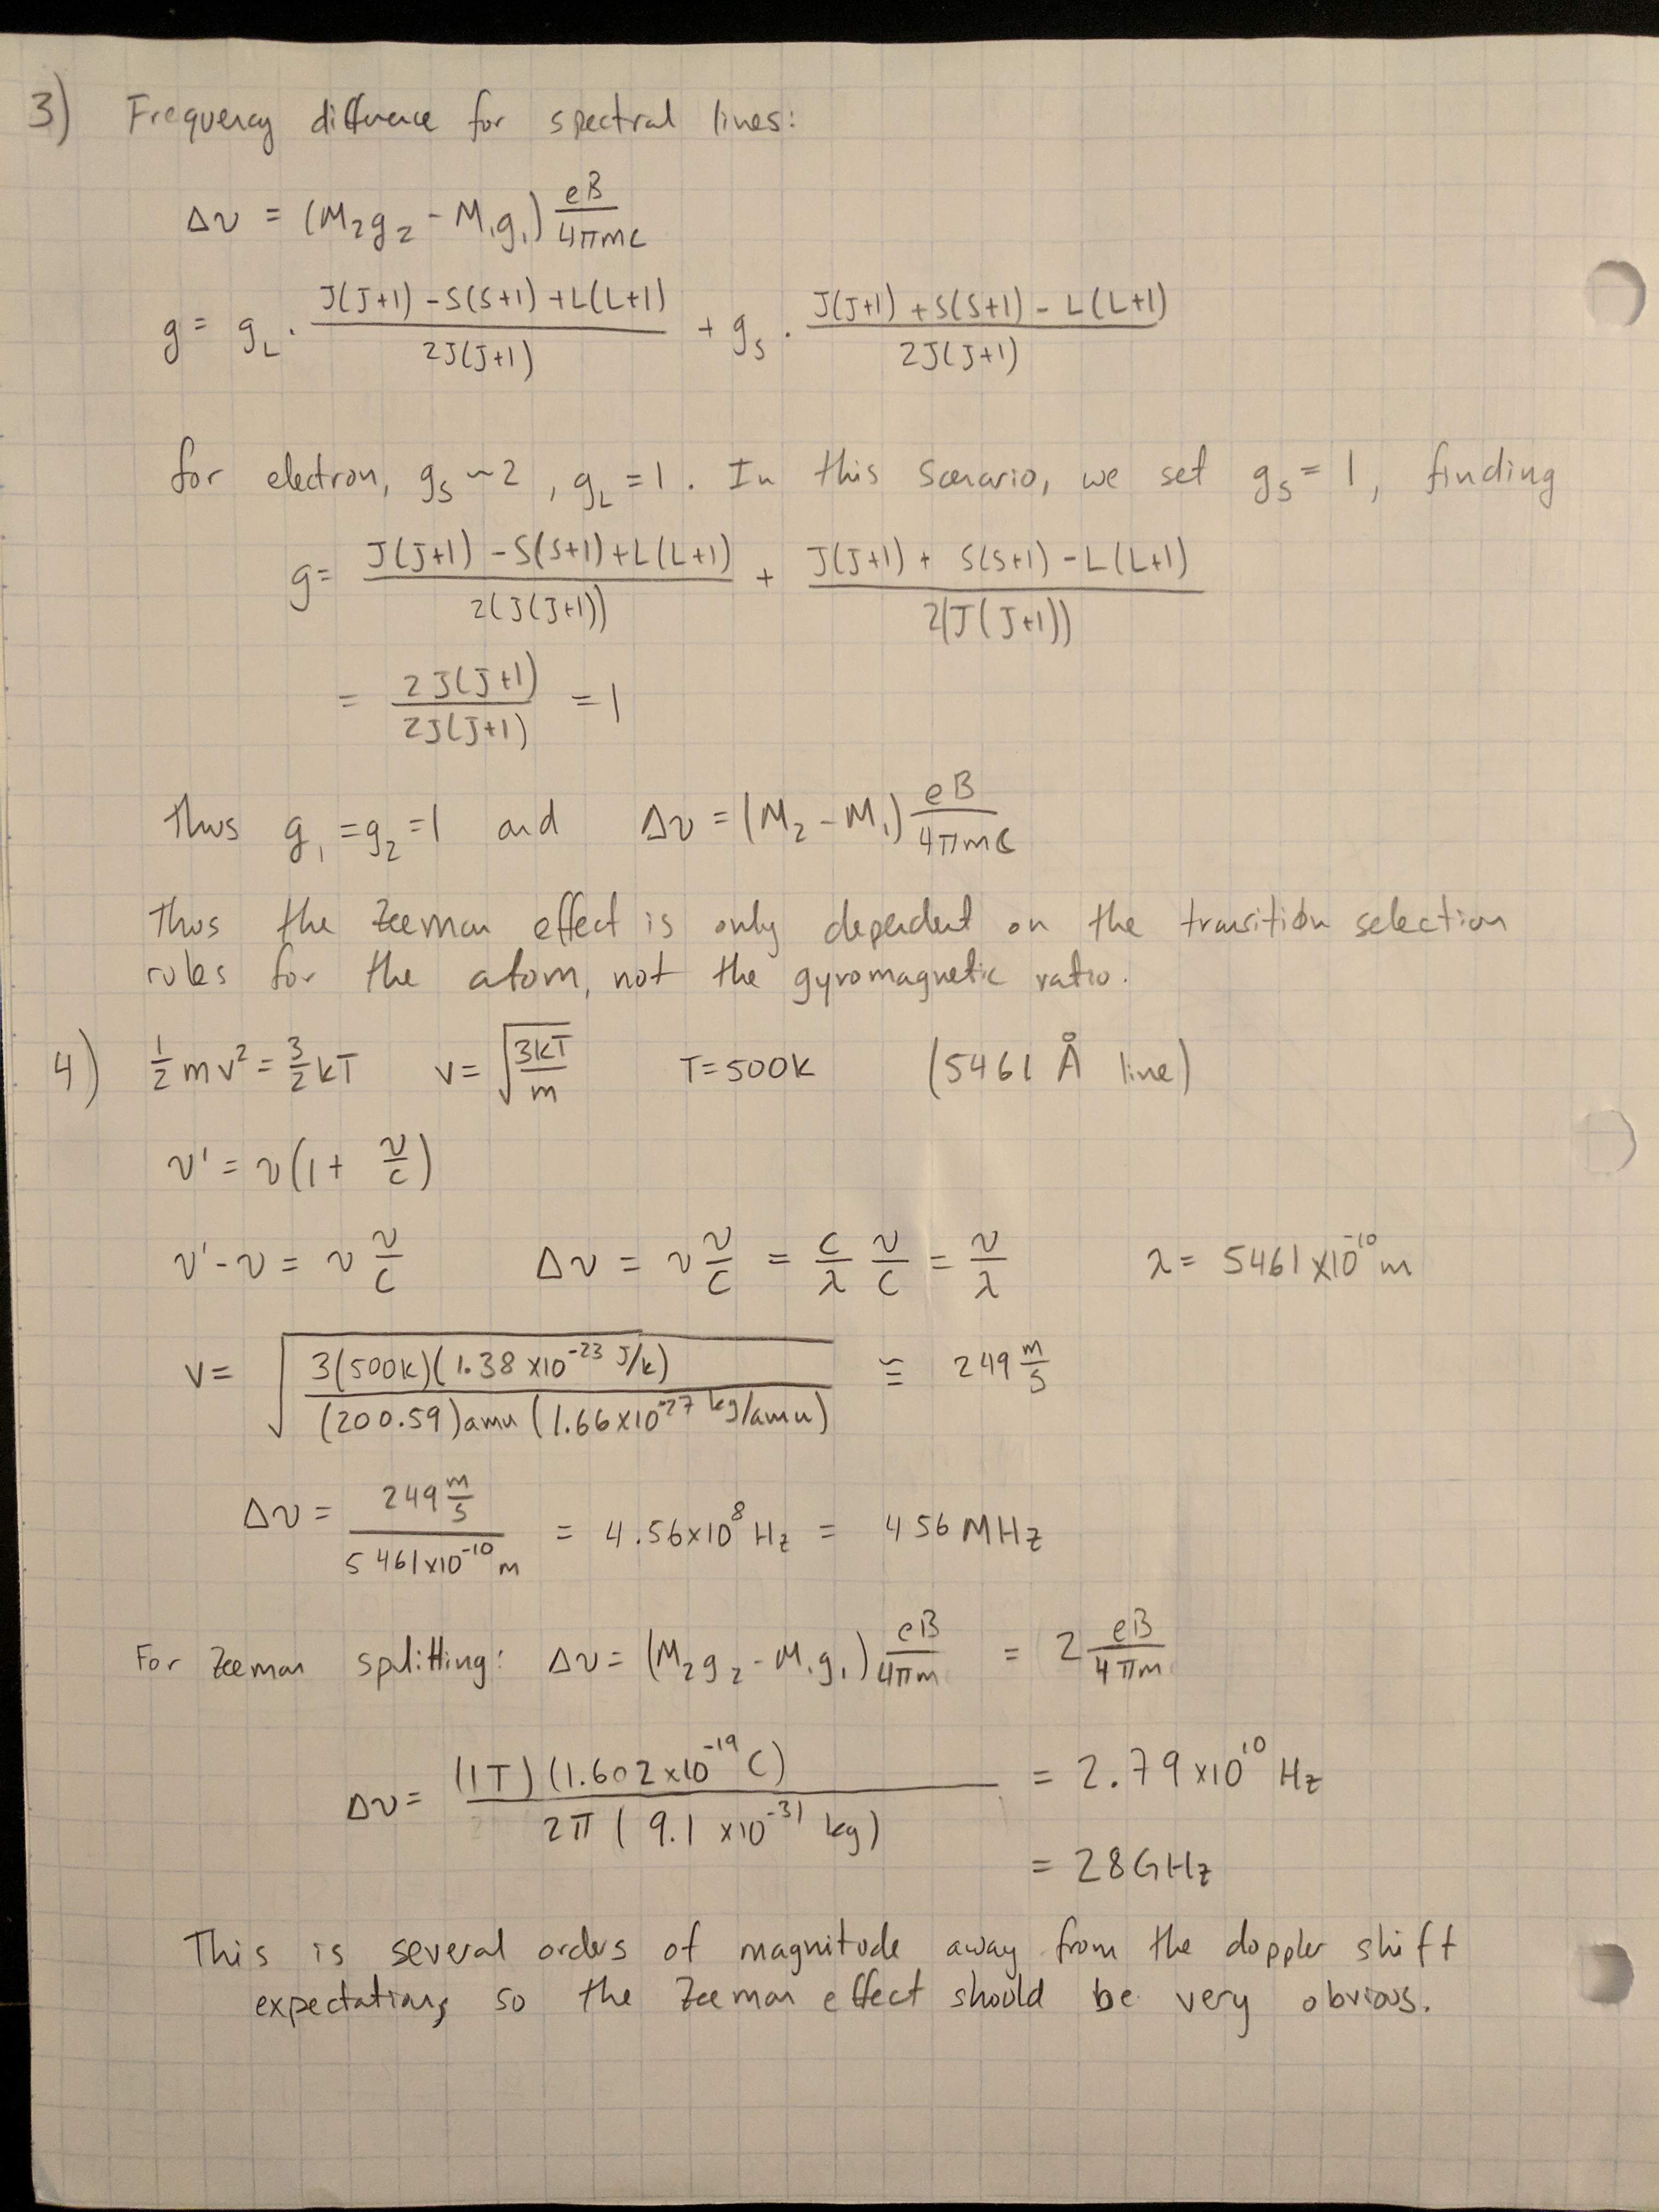 3) Frequency difference for spectral lines:
Δν = (M₂g₂ - M₁g₁) eB/4πmc
g = g_L · (J(J+1) - S(S+1) + L(L+1))/(2J(J+1)) + g_s · (J(J+1) + S(S+1) - L(L+1))/(2J(J+1))
for electron, g_s ~ 2, g_L = 1. In this scenario, we set g_s = 1, finding
g = (J(J+1) - S(S+1) + L(L+1))/(2(J(J+1))) + (J(J+1) + S(S+1) - L(L+1))/(2(J(J+1)))
= 2J(J+1)/2J(J+1) = 1
Thus g₁ = g₂ = 1 and Δν = (M₂ - M₁) eB/4πmc
Thus the Zeeman effect is only dependent on the transition selection
rules for the atom, not the gyromagnetic ratio.
4) ½mv² = 3/2 kT v = √(3kT/m) T = 500K (5461 Å line)
ν' = ν(1 + v/c)
ν' - ν = ν v/c Δν = ν v/c = c/λ v/c = v/λ λ = 5461×10⁻¹⁰ m
v = √(3(500K)(1.38×10⁻²³ J/K)/((200.59)amu(1.66×10⁻²⁷ kg/amu))) ≅ 249 m/s
Δν = (249 m/s)/(5461×10⁻¹⁰ m) = 4.56×10⁸ Hz = 456 MHz
For Zeeman splitting: Δν = (M₂g₂ - M₁g₁) eB/4πm = 2 eB/4πm
Δν = (1T)(1.602×10⁻¹⁹ C)/(2π(9.1×10⁻³¹ kg)) = 2.79×10¹⁰ Hz
= 28GHz
This is several orders of magnitude away from the doppler shift
expectations, so the Zeeman effect should be very obvious.